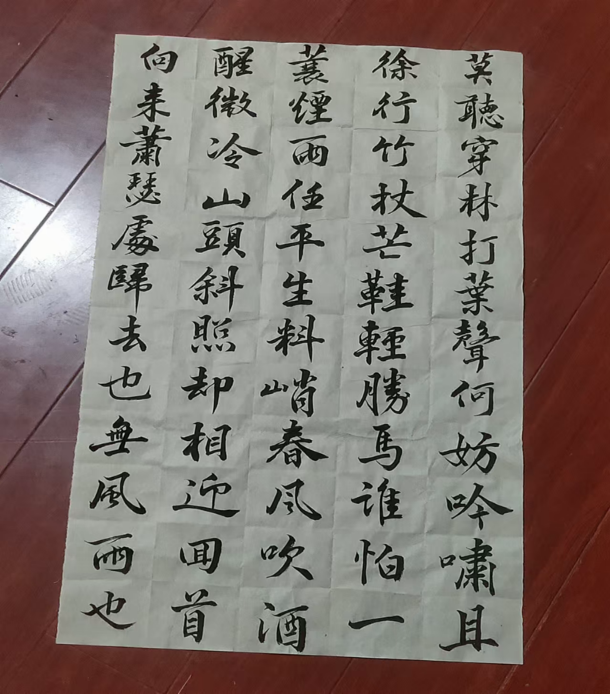 莫聽穿林打葉聲何妨吟嘯且
徐行竹杖芒鞋輕勝馬誰怕一
蓑煙雨任平生料峭春风吹酒
醒微冷山頭斜照却相迎囬首
向来蕭瑟處歸去也無風雨也